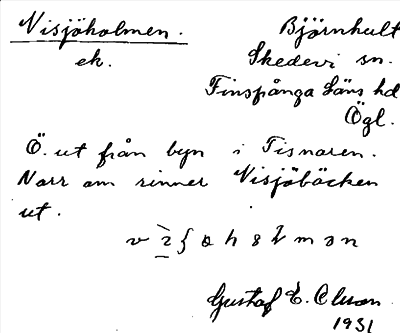 Visjöholmen. Björnhult
ek. Skedevi sn.
Finspånga läns hd
Ögl.
Ö. ut från byn i Tisnaren.
Norr om rinner Visjöbäcken
ut.
Gustaf E. Olsson
1931